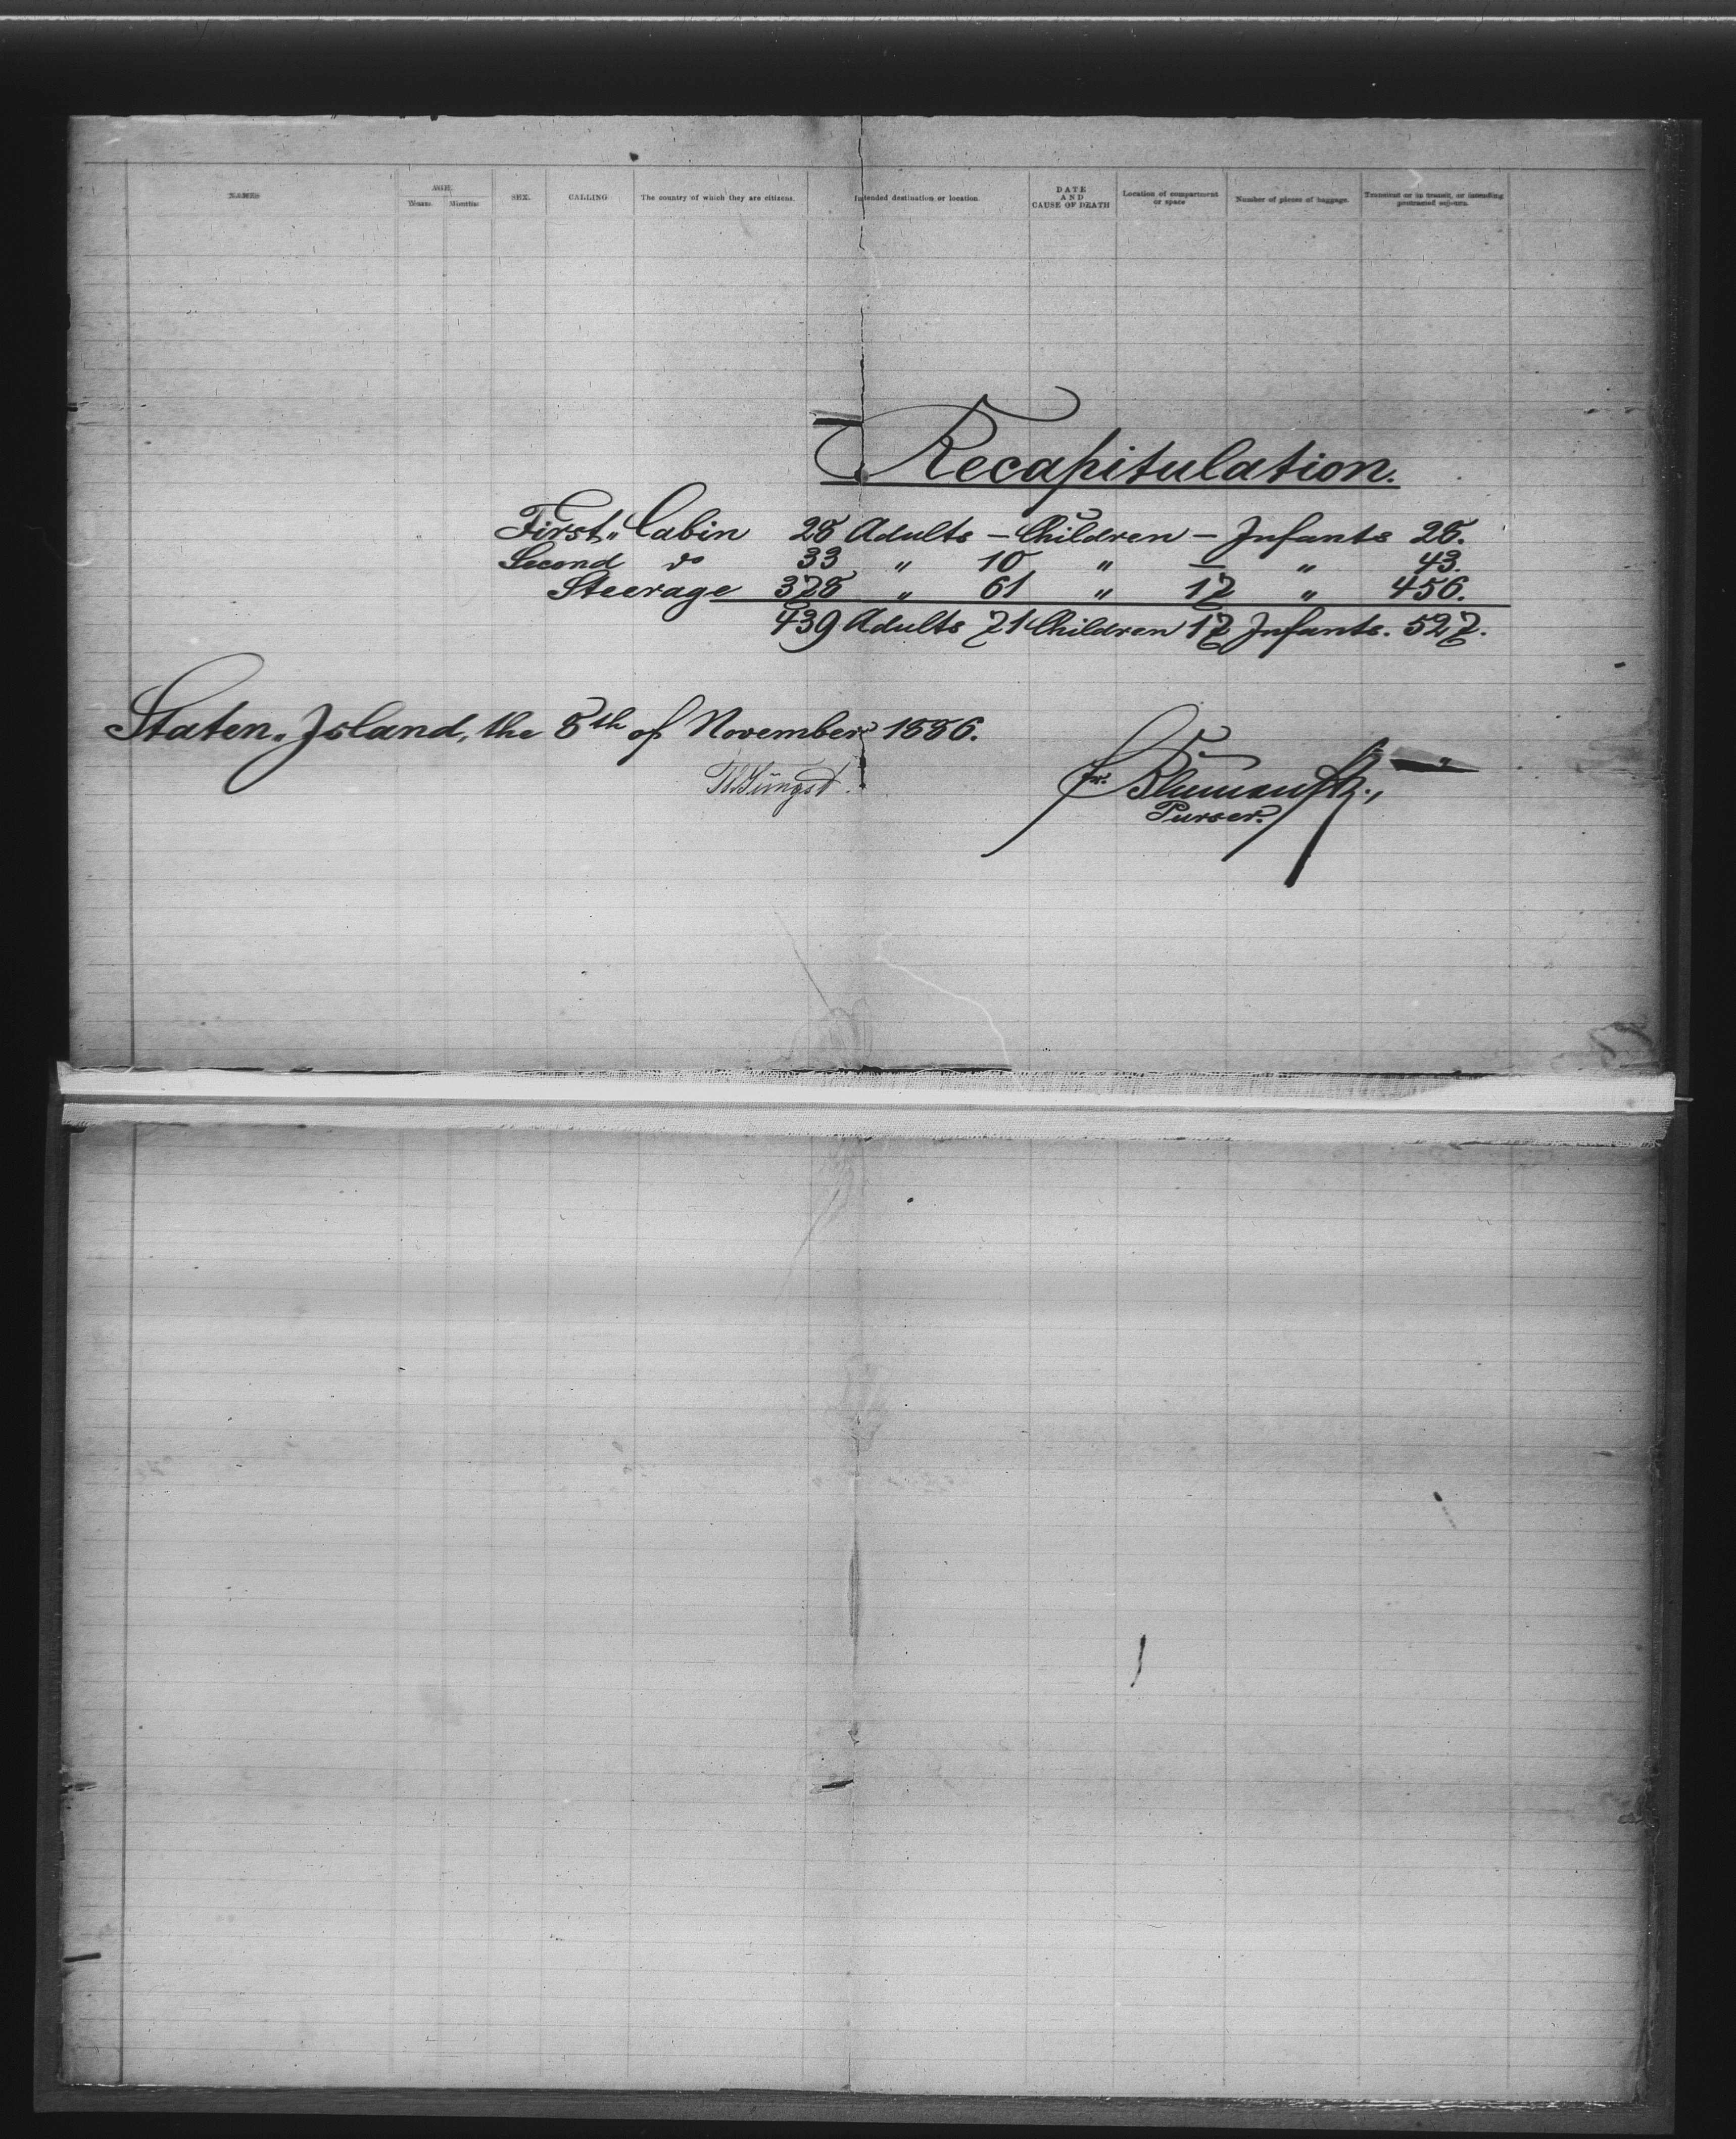 NAMES AGE. Years. Months. SEX. CALLING The country of which they are citizens. Intended destination or location. DATE AND CAUSE OF DEATH Location of compartment or space Number of pieces of baggage. Transient or in transit, or intending protracted sojourn.
Recapitulation.
First „ Cabin 28 Adults – Children – Infants 28.
Second do 33 „ 10 „ – „ 43.
Steerage 378 „ 61 „ 17 „ 456.
439 Adults 71 Children 17 Infants. 527.
Staten „ Island, the 8th of November 1886.
Purser.